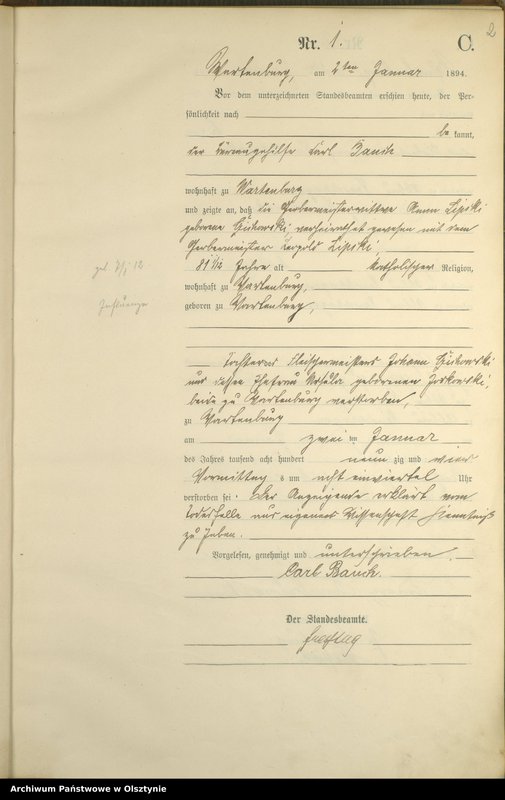 2
Nr. 1. C.
Wartenburg, am 2ten Januar 1894.
Vor dem unterzeichneten Standesbeamten erschien heute, der Per-
sönlichkeit nach
be kannt,
der Büreaugehilfe Carl Banik
wohnhaft zu Wartenburg
und zeigte an, daß die Gerbermeisterwittwe Anna Lipski
geborene verheirathet gewesen mit dem
Gerbermeister Leopold Lipski,
81 1/2 Jahre alt katholischer Religion,
wohnhaft zu Wartenburg,
geboren zu Wartenburg,
Tochter des Fleischermeisters Johann
und dessen Ehefrau Ursula geborenen
beide zu Wartenburg verstorben,
zu Wartenburg
am zwei ten Januar
des Jahres tausend acht hundert neun zig und vier
Vormittag s um acht einviertel Uhr
verstorben sei. Der Anzeigende erklärt vom
Todesfalle aus eigener Wissenschaft Kenntniß
zu haben.
Vorgelesen, genehmigt und unterschrieben.
Carl Banik.
Der Standesbeamte.
Freytag
Influenza
Archiwum Państwowe w Olsztynie